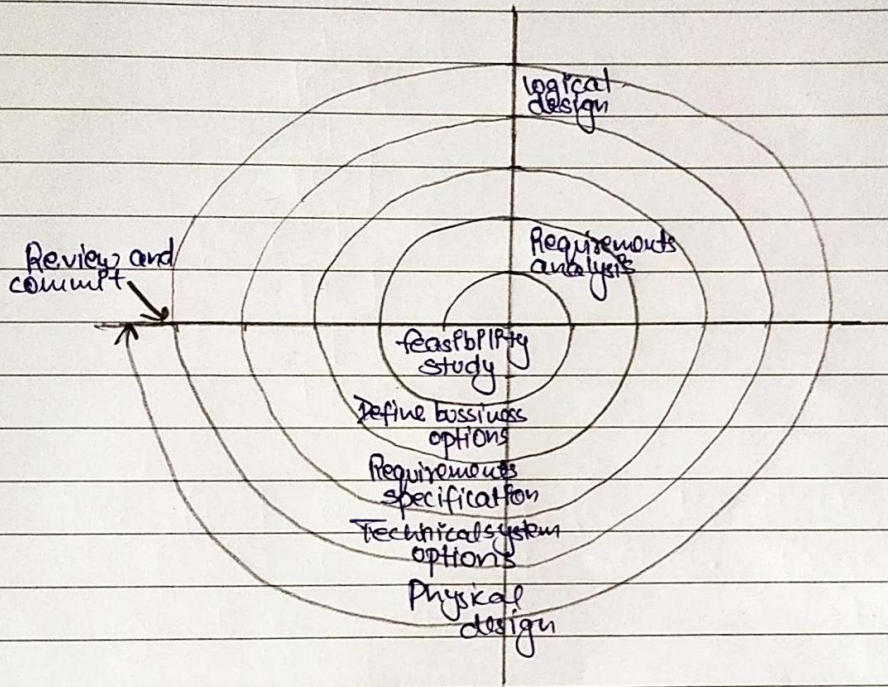 Logical
design
Requirements
analysis
Review and
commit
feasibility
study
Define bussiness
options
Requirements
specification
Technical system
options
Physical
design